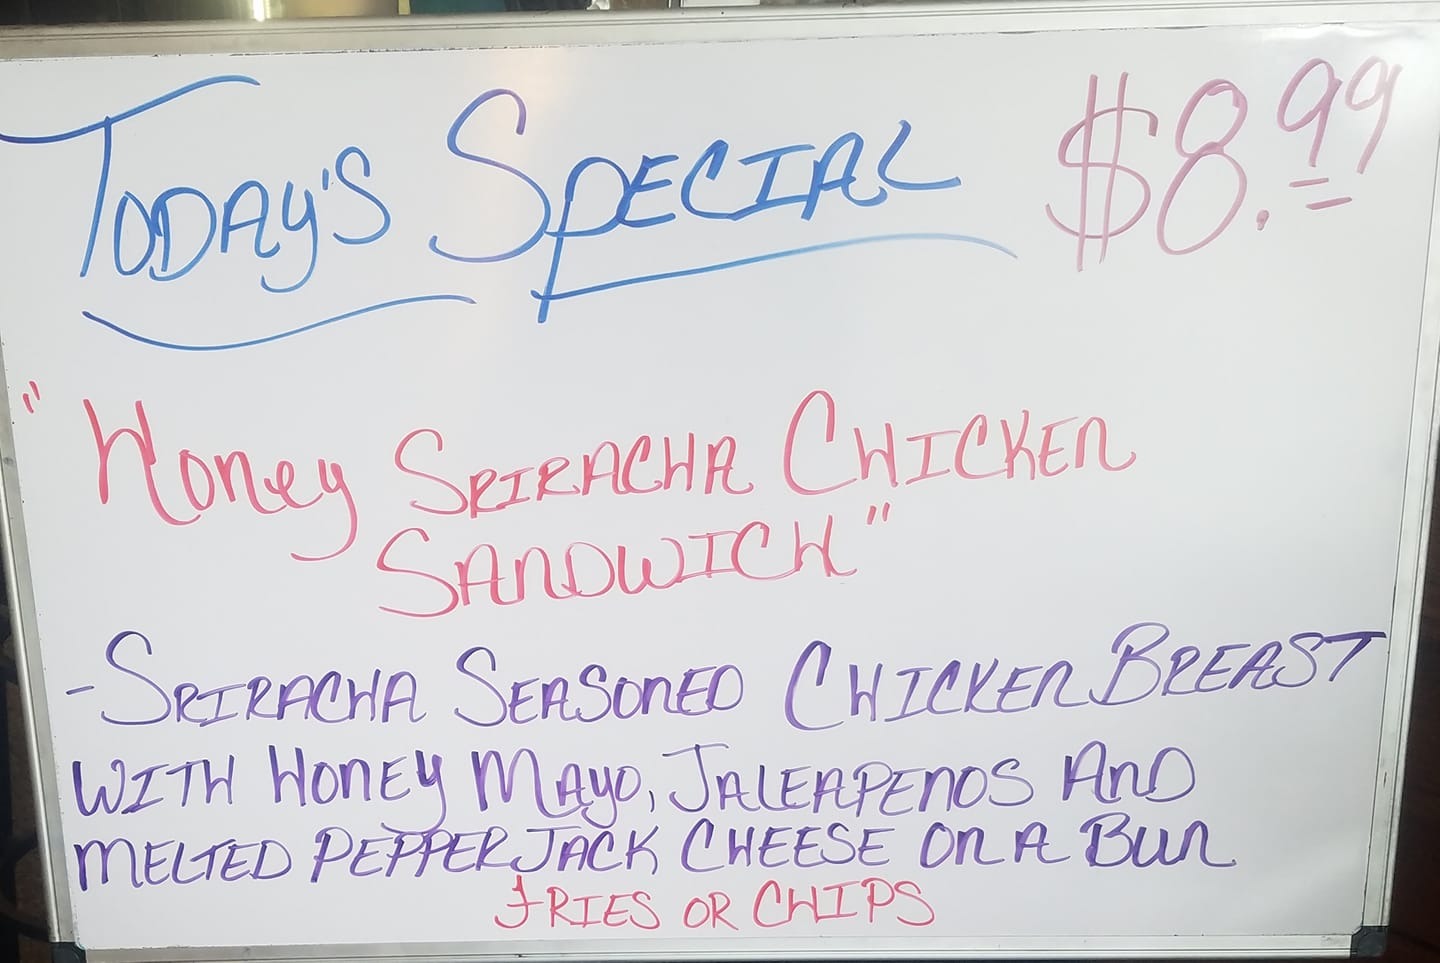 Today's Special $8.99
"Honey Sriracha Chicken
Sandwich"
-Sriracha Seasoned Chicken Breast
with Honey Mayo, Jaleapenos And
Melted Pepper Jack Cheese on a Bun
Fries or Chips